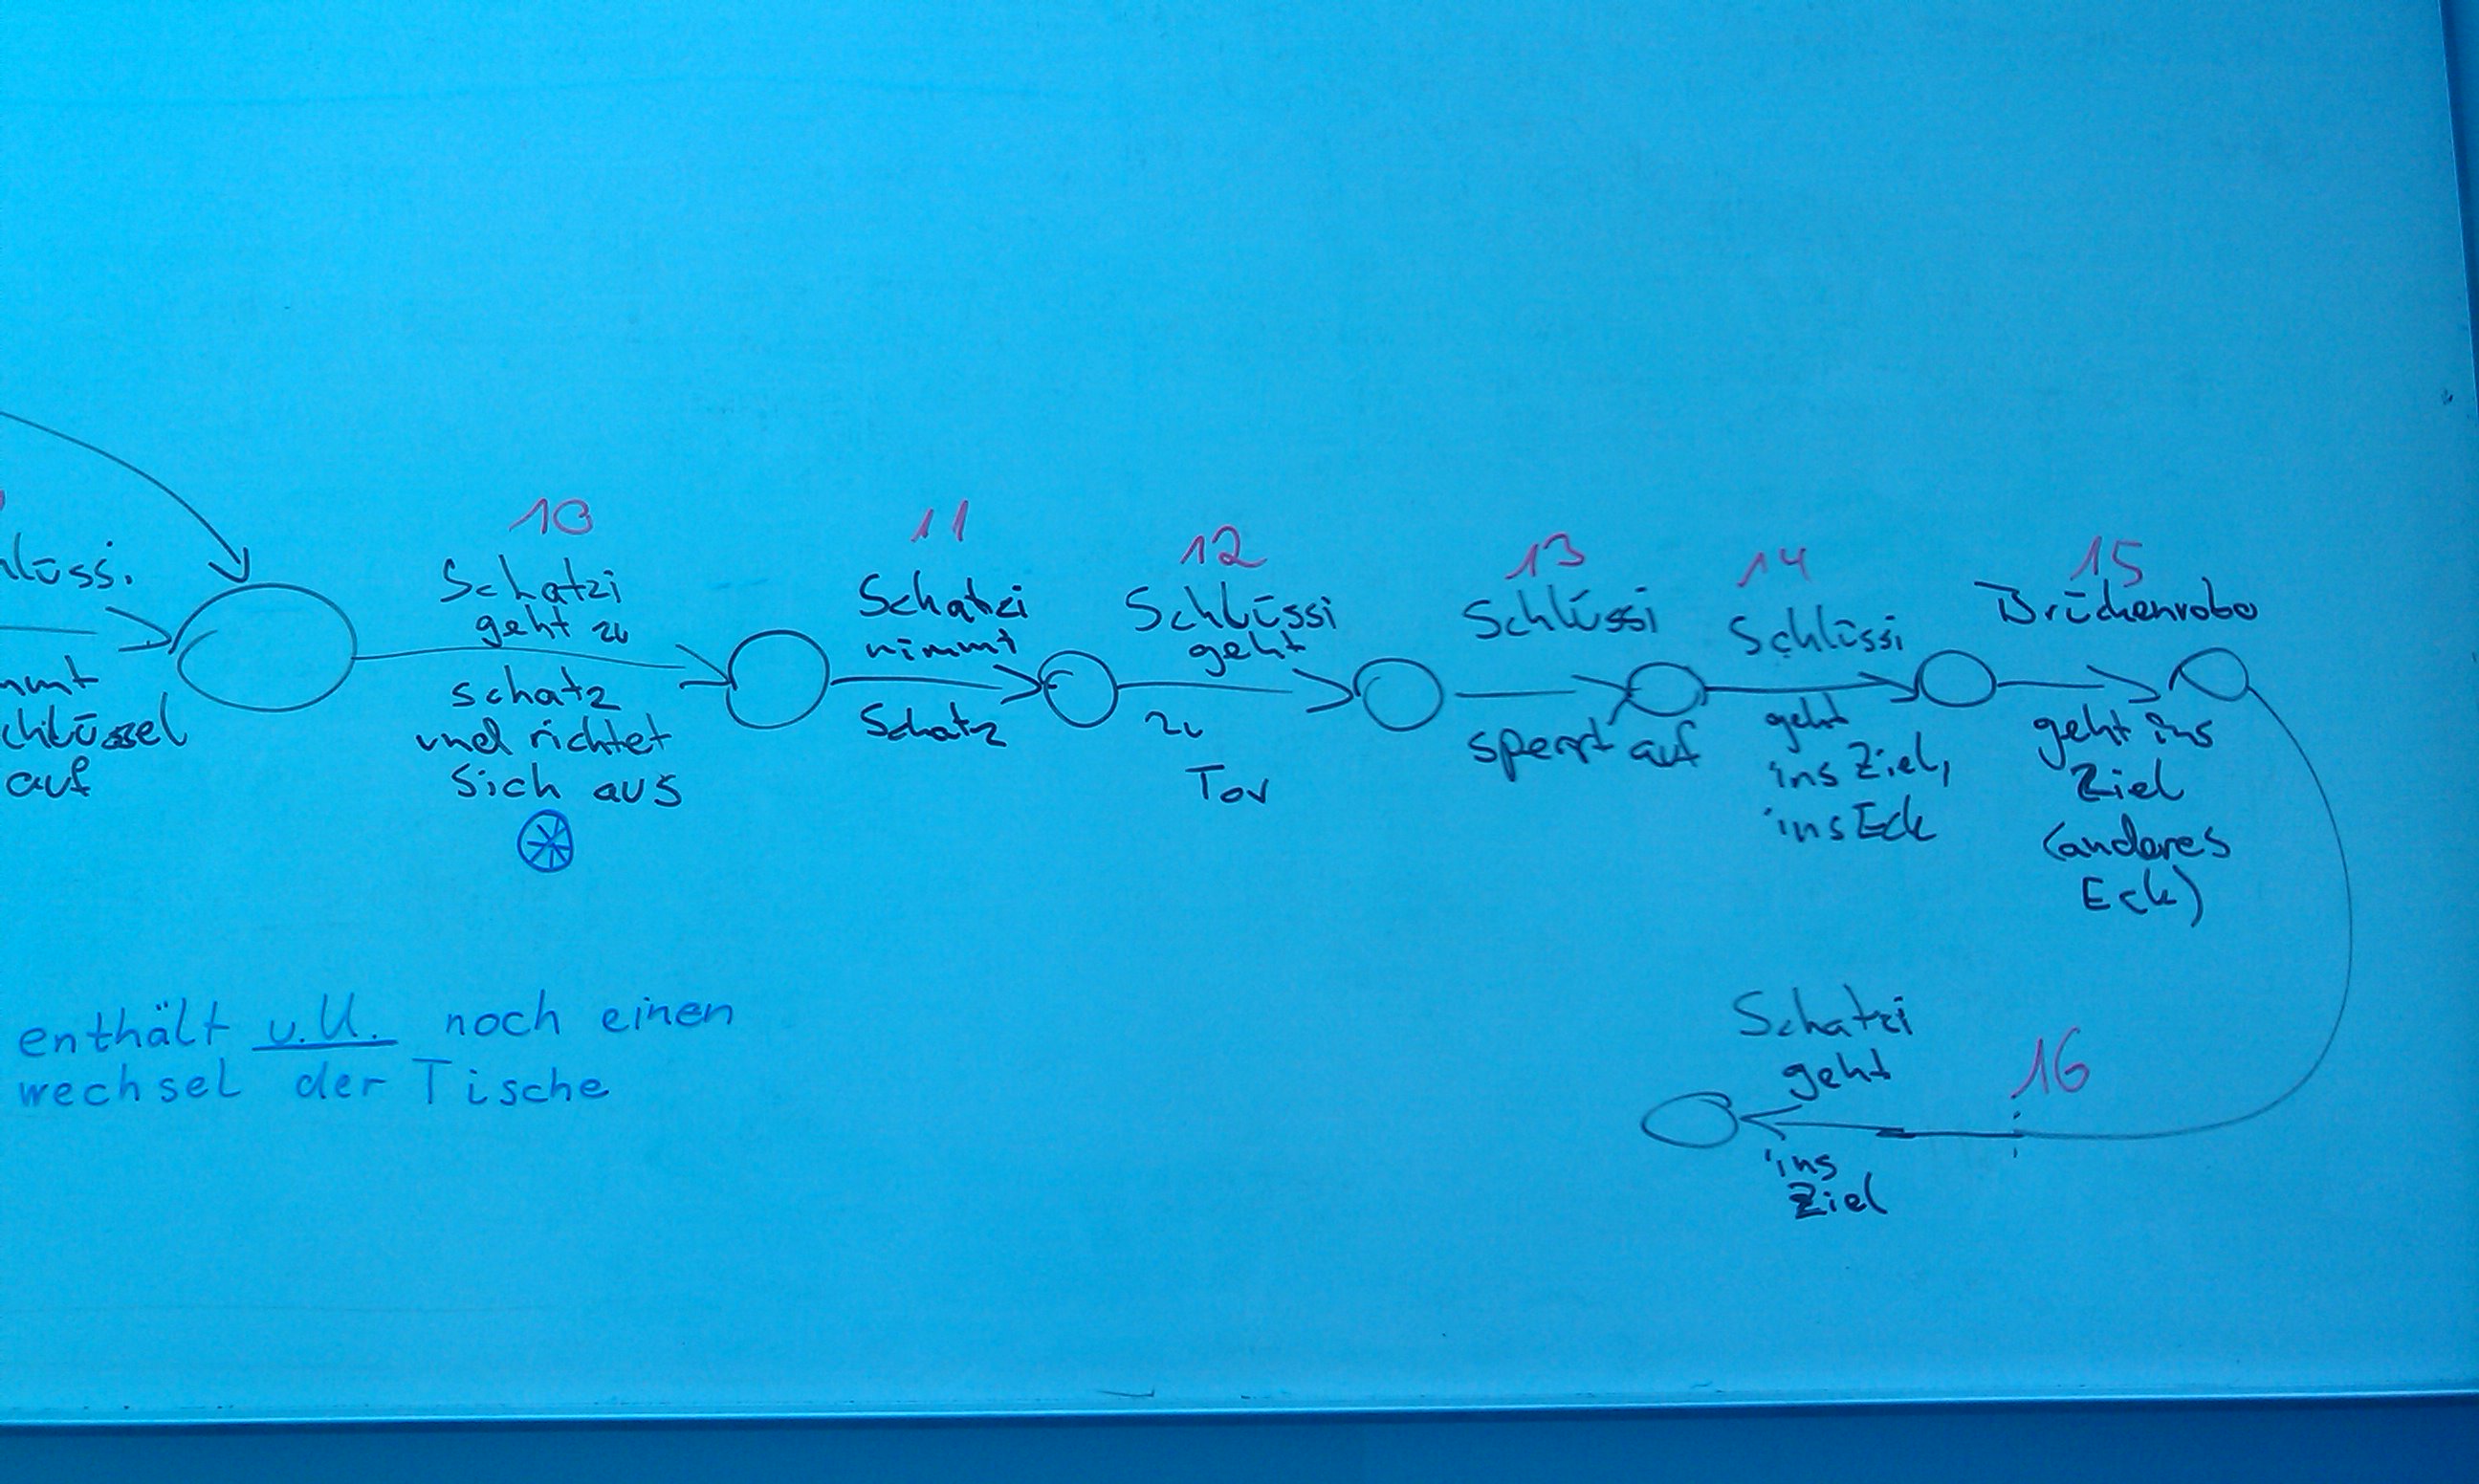 lüss.
mmt
chlüssel
auf
10
Schatzi
geht zu
Schatz
und richtet
sich aus
11
Schatzi
nimmt
Schatz
12
Schlüssi
geht
zu
Tor
13
Schlüssi
sperrt auf
14
Schlüssi
geht
ins Ziel,
ins Eck
15
Brückenrobo
geht ins
Ziel
(anderes
Eck)
16
Schatzi
geht
ins
Ziel
enthält u.U. noch einen
wechsel der Tische